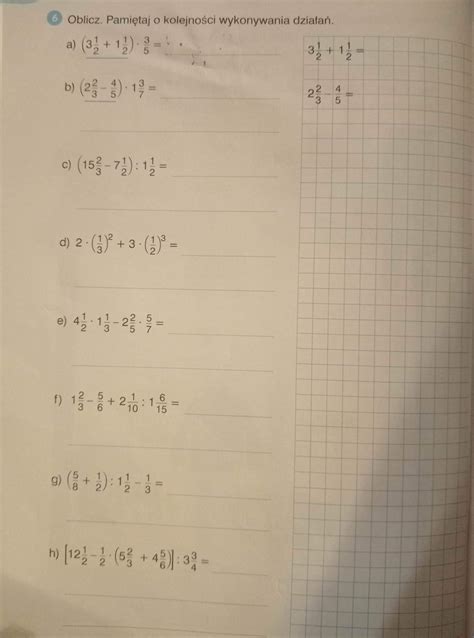 6 Oblicz. Pamiętaj o kolejności wykonywania działań.
a) (3 1/2 + 1 1/2) · 3/5 =
3 1/2 + 1 1/2 =
b) (2 2/3 - 4/5) · 1 3/7 =
2 2/3 - 4/5 =
c) (15 2/3 - 7 1/2) : 1 1/2 =
d) 2 · (1/3)² + 3 · (1/2)³ =
e) 4 1/2 · 1 1/3 - 2 2/5 · 5/7 =
f) 1 2/3 - 5/6 + 2 1/10 : 1 6/15 =
g) (5/8 + 1/2) : 1 1/2 - 1/3 =
h) [12 1/2 - 1/2 · (5 2/3 + 4 5/6)] : 3 3/4 =